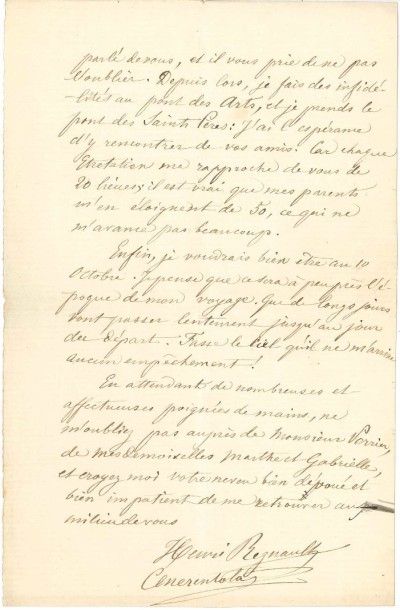 parlé de vous, et il vous prie de ne pas
l'oublier. Depuis lors, je fais des infidé-
lités au pont des Arts, et je prends le
pont des Saints Pères: J'ai l'espérance
d'y rencontrer de vos amis. Car chaque
Etretation me rapproche de vous de
20 lieues; il est vrai que mes parents
m'en éloignent de 50, ce qui ne
m'avance pas beaucoup.
Enfin, je voudrais bien être au 10
Octobre. Je pense que ce sera à peu près l'é-
poque de mon voyage. Que de longs jours
vont passer lentement jusqu'au jour
du départ. Fasse le Ciel qu'il ne m'arrive
aucun empêchement!
En attendant de nombreuses et
affectueuses poignées de mains, ne
m'oubliez pas auprès de Monsieur
de Mesdemoiselles Marthe et Gabrielle,
et croyez moi votre neveu bien dévoué et
bien impatient de me retrouver au
milieu de vous
Henri Regnault